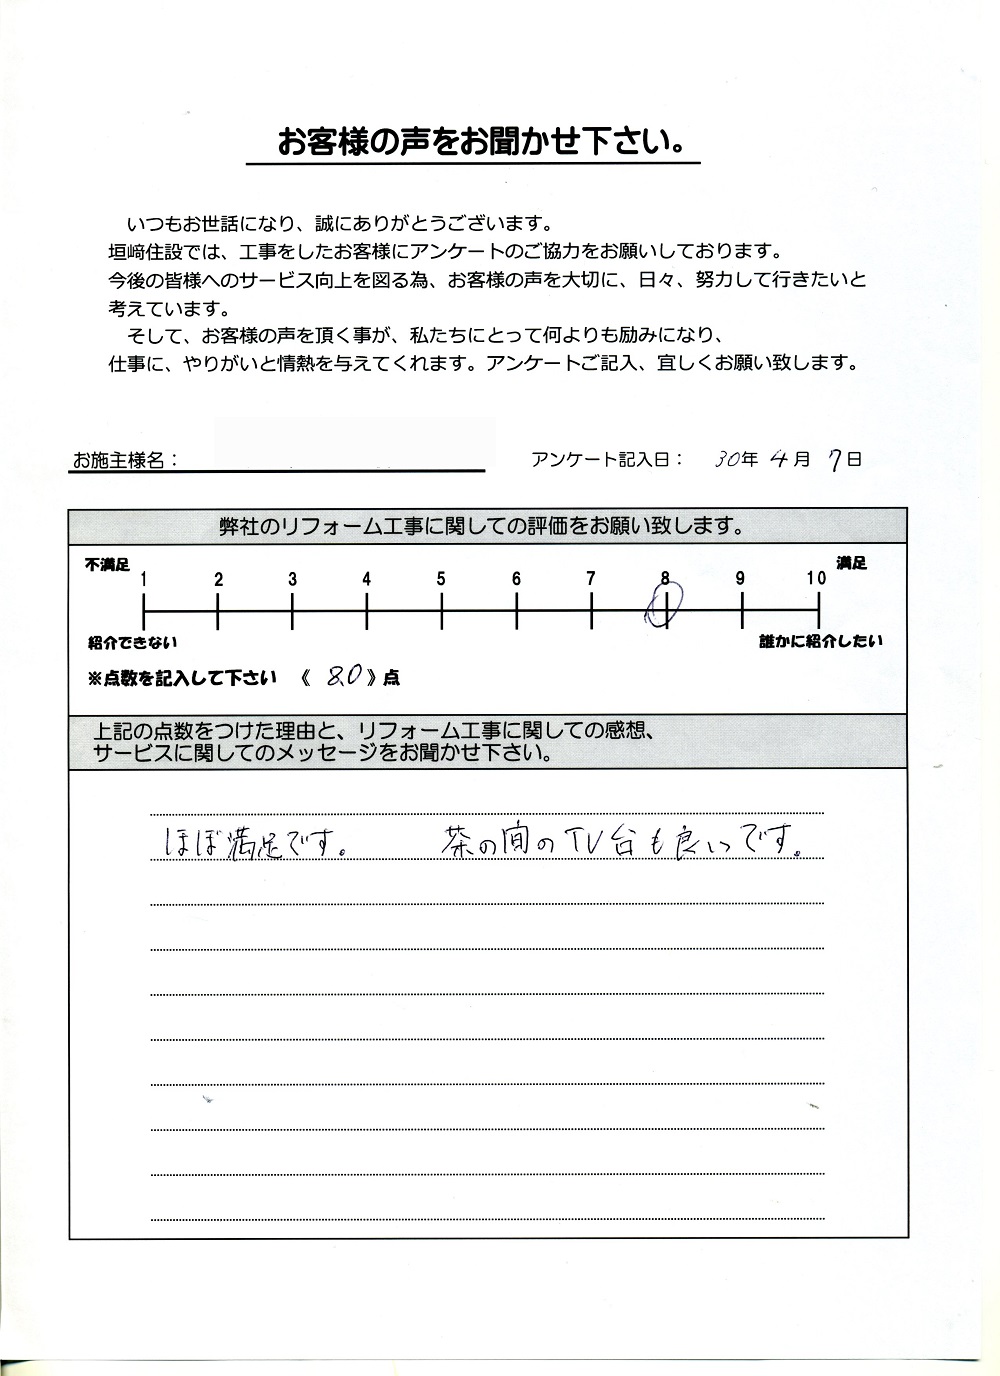 お客様の声をお聞かせ下さい。
いつもお世話になり、誠にありがとうございます。
垣﨑住設では、工事をしたお客様にアンケートのご協力をお願いしております。
今後の皆様へのサービス向上を図る為、お客様の声を大切に、日々、努力して行きたいと
考えています。
そして、お客様の声を頂く事が、私たちにとって何よりも励みになり、
仕事に、やりがいと情熱を与えてくれます。アンケートご記入、宜しくお願い致します。
お施主様名： アンケート記入日： 30年 4月 7日
弊社のリフォーム工事に関しての評価をお願い致します。
不満足 満足
1 2 3 4 5 6 7 8 9 10
紹介できない 誰かに紹介したい
※点数を記入して下さい 《 8.0 》点
上記の点数をつけた理由と、リフォーム工事に関しての感想、
サービスに関してのメッセージをお聞かせ下さい。
ほぼ満足です。 茶の間のTV台も良いです。